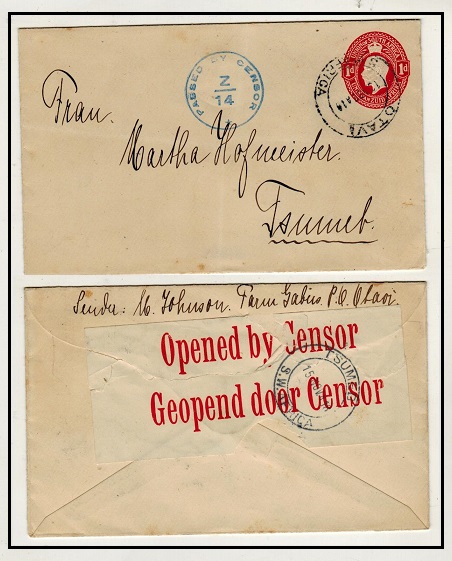 PASSED BY CENSOR
Z
14
UNION OF SOUTH AFRICA
1d 1d
OTAVI
Frau.
Martha Hofmeister.
Tsumeb.
Senda: M. Johnson. Farm Gabus, P.O. Otavi.
Opened by Censor
Geopend door Censor
TSUMEB
S.W. AFRICA